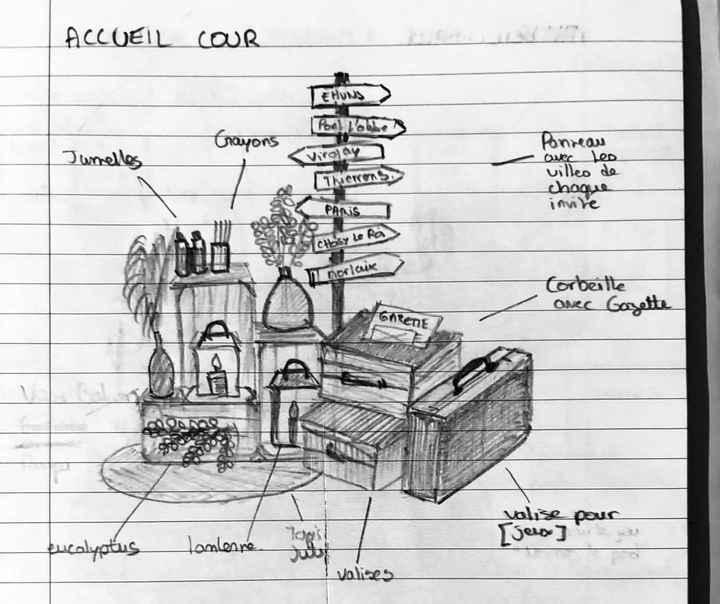 ACCUEIL COUR
Jumelles
Crayons
EMUNS
Pont l'abbé
Virolay
Thierrens
PARIS
CHOISY Le Roi
Morlaix
Panneau
avec les
villes de
chaque
invité
Corbeille
avec Gazette
GAZETTE
eucalyptus
lanterne
Tapis
valises
valise pour
[jeux]